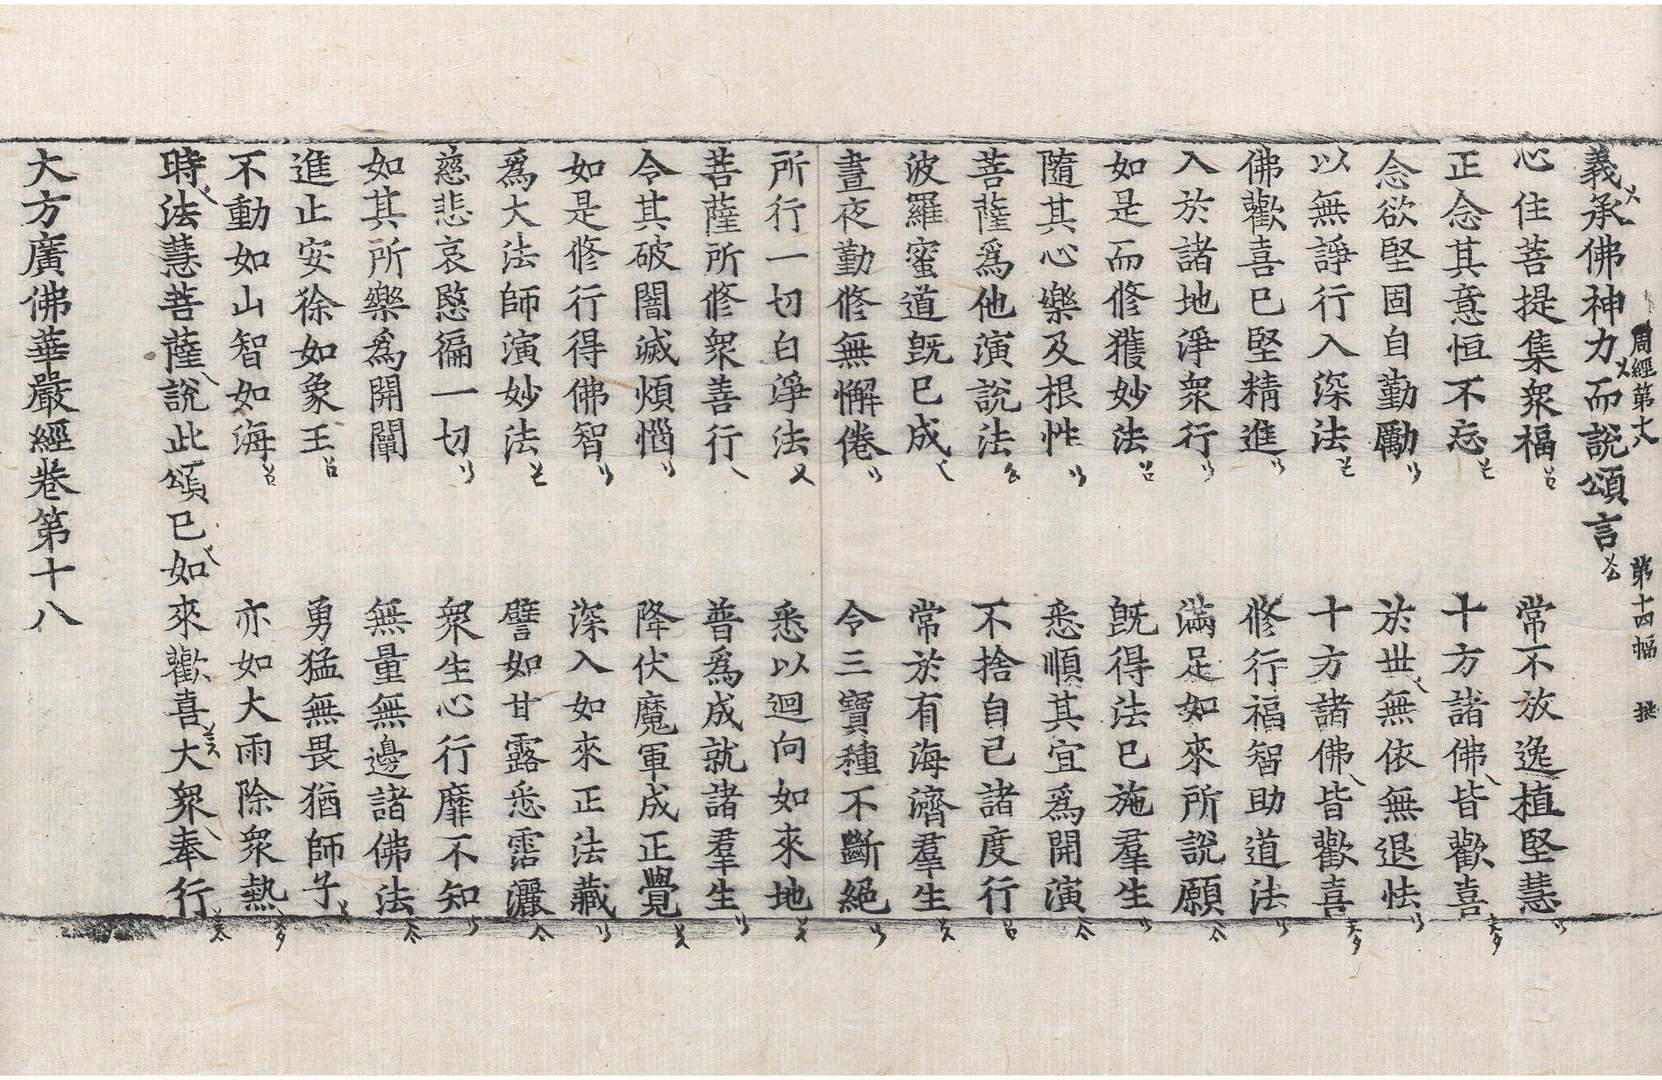 義承佛神力而說頌言
周經第十八　第十四幅
心住菩提集衆福　常不放逸植堅慧
正念其意恒不忘　十方諸佛皆歡喜
念欲堅固自勤勵　於世無依無退怯
以無諍行入深法　十方諸佛皆歡喜
佛歡喜已堅精進　修行福智助道法
入於諸地淨衆行　滿足如來所說願
如是而修獲妙法　旣得法已施羣生
隨其心樂及根性　悉順其宜爲開演
菩薩爲他演說法　不捨自己諸度行
波羅蜜道旣已成　常於有海濟羣生
晝夜勤修無懈倦　令三寶種不斷絕
所行一切白淨法　悉以迴向如來地
菩薩所修衆善行　普爲成就諸羣生
令其破闇滅煩惱　降伏魔軍成正覺
如是修行得佛智　深入如來正法藏
爲大法師演妙法　譬如甘露悉霑灑
慈悲哀愍徧一切　衆生心行靡不知
如其所樂爲開闡　無量無邊諸佛法
進止安徐如象王　勇猛無畏猶師子
不動如山智如海　亦如大雨除衆熱
時法慧菩薩說此頌已如來歡喜大衆奉行
大方廣佛華嚴經卷第十八